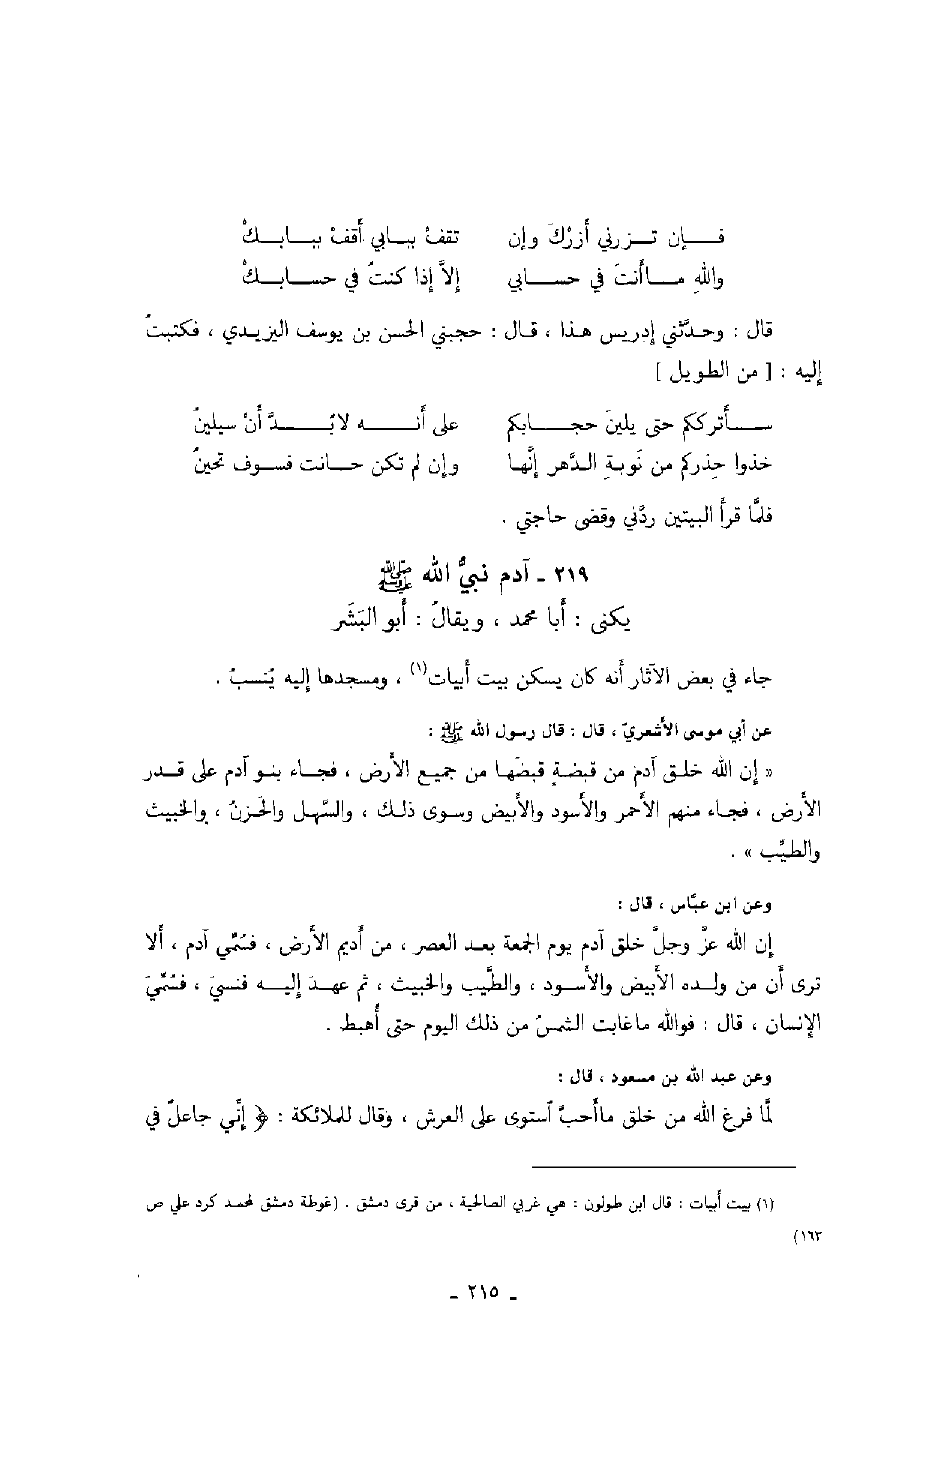 فإن تزرني أزرْكَ وإن تقفْ ببابي أقفْ ببابكْ
واللهِ ماأنتَ في حسابي إلاَّ إذا كنتُ في حسابكْ
قال : وحدَّثني إدريس هذا ، قال : حجبني الحسن بن يوسف اليزيدي ، فكتبتُ
إليه : [ من الطويل ]
سأترككم حتى يلينَ حجابكم على أنه لابُدَّ أنْ سيلينُ
خذوا حِذركم من نَوبةِ الدَّهر إنَّها وإن لم تكن حانت فسوف تحينُ
فلمَّا قرأ البيتين ردَّني وقضى حاجتي .
٢١٩ ـ آدم نبيُّ الله ﷺ
يكنى : أبا محمد ، ويقالُ : أبو البَشَر
جاء في بعض الآثار أنه كان يسكن بيت أبيات(١) ، ومسجدها إليه يُنسبُ .
عن أبي موسى الأشعريّ ، قال : قال رسول الله ﷺ :
« إن الله خلق آدمَ من قبضةٍ قبضَها من جميع الأرض ، فجاء بنو آدم على قدر
الأرض ، فجاء منهم الأحمر والأسود والأبيض وسوى ذلك ، والسَّهل والحَزنُ ، والخبيث
والطيِّب » .
وعن ابن عبَّاس ، قال :
إن الله عزَّ وجلَّ خلق آدم يوم الجمعة بعد العصر ، من أديم الأرض ، فسُمِّي آدم ، ألا
ترى أن من ولده الأبيض والأسود ، والطَّيب والخبيث ، ثم عهدَ إليه فنسيَ ، فسُمِّيَ
الإنسان ، قال : فوالله ماغابت الشمسُ من ذلك اليوم حتى أهبط .
وعن عبد الله بن مسعود ، قال :
لمَّا فرغ الله من خلق ماأحبَّ ٱستوى على العرش ، وقال للملائكة : ﴿ إنَّي جاعلٌ في
(١) بيت أبيات : قال ابن طولون : هي غربي الصالحية ، من قرى دمشق . (غوطة دمشق لمحمد كرد علي ص
١٦٣)
ـ ٢١٥ ـ